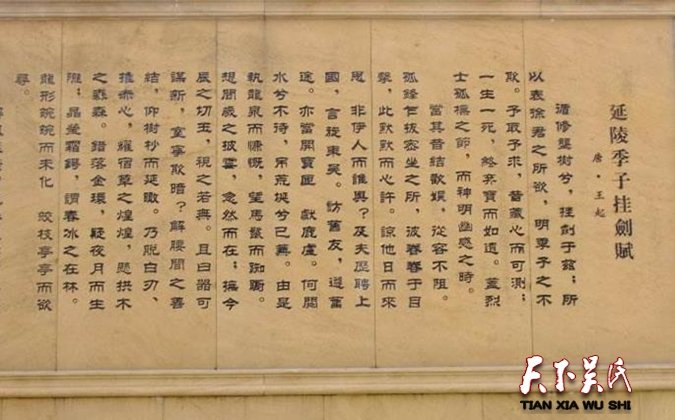 延陵季子挂劍賦
唐·王起
循修壟樹兮，挂劍于兹；所
以表徐君之所欲，明季子之不
欺。予取予求，昔藏心而可測；
一生一死，終弃寶而如遺。盖烈
士孤標之節，而神明幽感之時。
當其昔結歡娛，從容不阻。
孤鋒乍拔密坐之所，彼眷眷于目
擊，此默默而心許。諒他日而來
思 非伊人而誰與？及夫歷聘上
國，言旋東吴。訪舊友，遵舊
途。亦當開寶匣 獻鹿盧。何閱
水兮不待，吊荒埏兮已蕪。由是
執龍泉而慷慨，望馬鬣而踟躕。
想閱歲之披雲，忿然而在；撫今
辰之切玉，視之若無。且曰器可
謀新，室寧欺暗？解腰間之善
結，仰樹杪而延瞰。乃脱白刃、
摧赤心，耀宿草之煌煌，懸拱木
之森森。錯落金環，疑夜月而生
隴；晶瑩霜鍔，謂春冰之在林。
龍形蜿蜿而未化 皎枝亭亭而欲
尋。
天下吴氏
TIAN XIA WU SHI